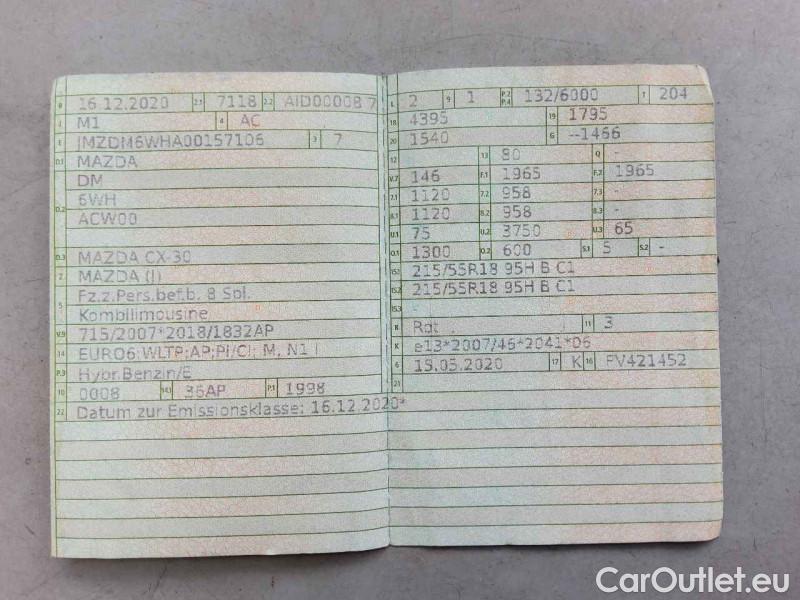 B 16.12.2020 2.1 7118 2.2 AID00008 7
J M1 4 AC
E JMZDM6WHA00157106 3 7
D.1 MAZDA
DM
D.2 6WH
ACW00
D.3 MAZDA CX-30
2 MAZDA (J)
5 Fz.z.Pers.bef.b. 8 Spl.
Kombilimousine
V.9 715/2007*2018/1832AP
14 EURO6;WLTP;AP;PI/CI; M, N1 I
P.3 Hybr.Benzin/E
10 0008 14.1 36AP P.1 1998
22 Datum zur Emissionsklasse: 16.12.2020*
L 2 9 1 P.2 P.4 132/6000 T 204
18 4395 19 1795
20 1540 G --1466
12 - 13 80 Q -
V.7 146 F.1 1965 F.2 1965
7.1 1120 7.2 958 7.3 -
8.1 1120 8.2 958 8.3 -
U.1 75 U.2 3750 U.3 65
O.1 1300 O.2 600 S.1 5 S.2 -
15.1 215/55R18 95H B C1
15.2 215/55R18 95H B C1
15.3 -
R Rot 11 3
K e13*2007/46*2041*06
6 19.05.2020 17 K 16 FV421452
21
CarOutlet.eu